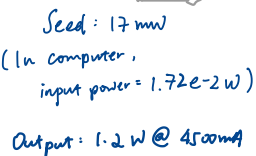 Seed: 17 mW
(In computer,
input power = 1.72e-2 W)
Output: 1.2 W @ 4500mA